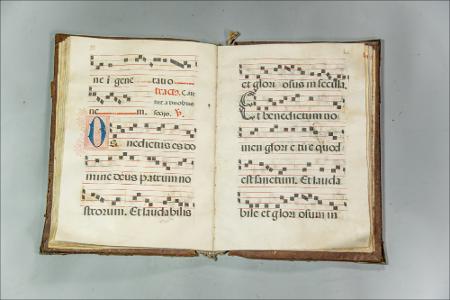 ne i gene ratio
tract. Can
tur a duobus
ne m. socijs. V.
nedictus es do
mine deus patrum no
strorum. Et laudabilis
et glori osus in secula.
Et benedictum no
men glorie tue quod
est sanctum. Et lauda
bile et glori osum in